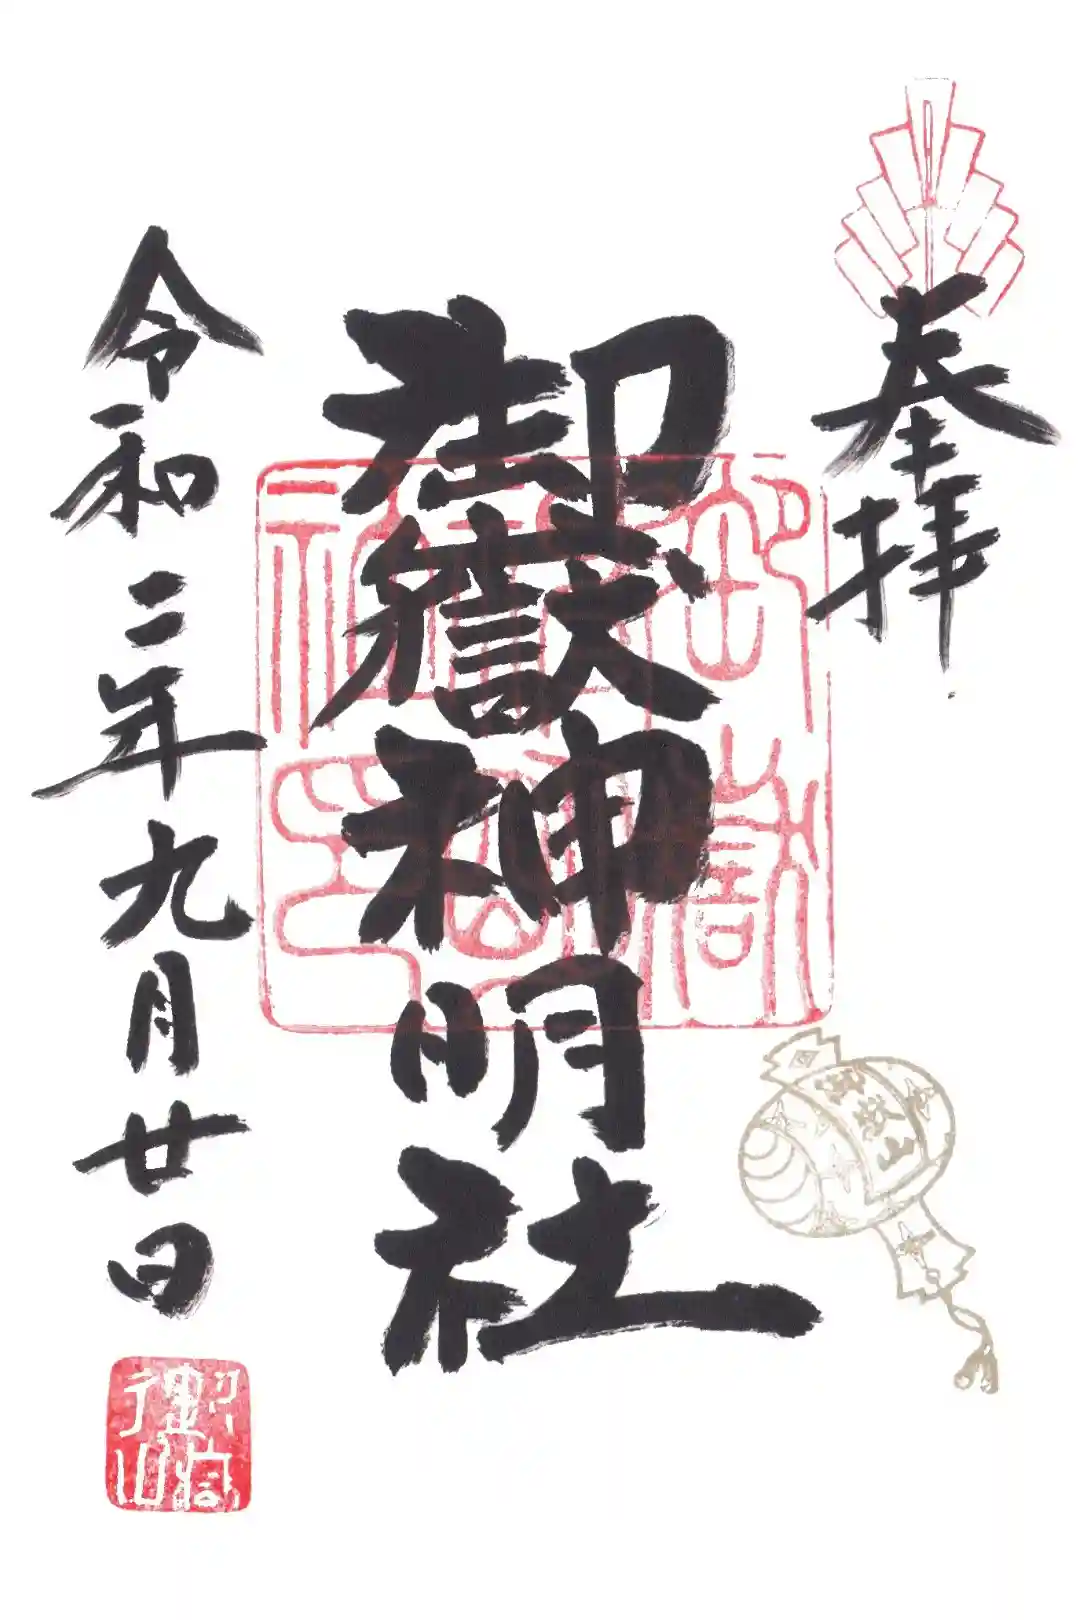 奉拝
御嶽神明社
御嶽山
令和二年九月廿日